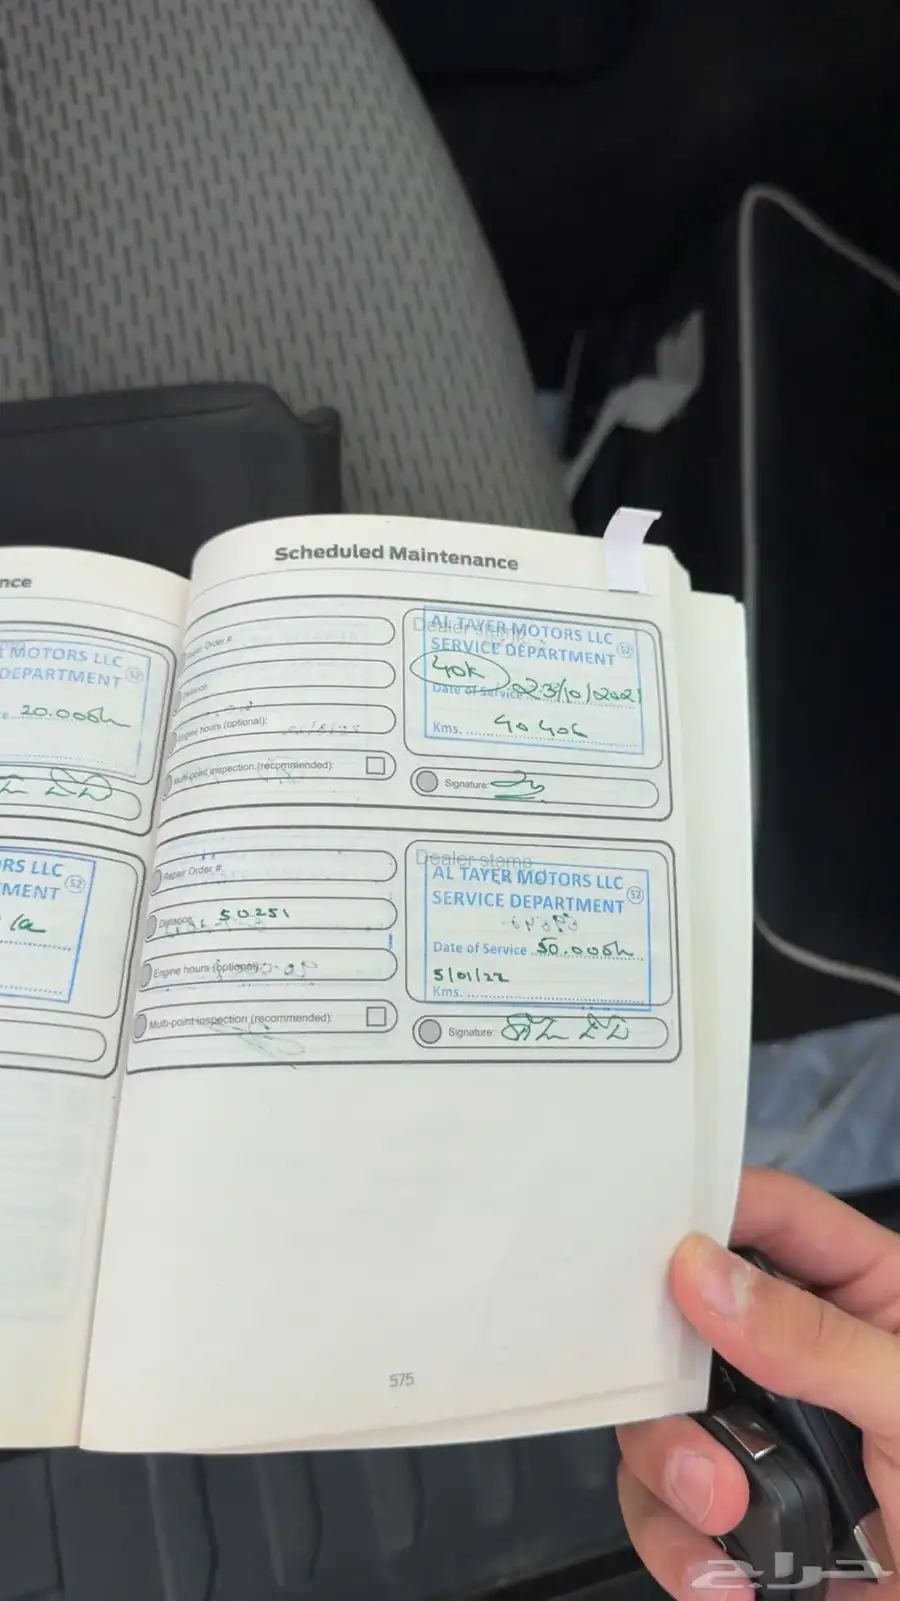 nce
MOTORS LLC
DEPARTMENT 52
20.000km
RS LLC
MENT 52
Scheduled Maintenance
Repair Order #:
Distance:
Engine hours (optional):
Multi-point inspection (recommended):
Dealer stamp
AL TAYER MOTORS LLC
SERVICE DEPARTMENT 52
40K
Date of Service 23/10/2021
Kms. 40406
Signature:
Repair Order #:
Distance: 50251
Engine hours (optional):
Multi-point inspection (recommended):
Dealer stamp
AL TAYER MOTORS LLC
SERVICE DEPARTMENT 52
Date of Service 50.000km
5/01/22
Kms.
Signature:
575
حراج